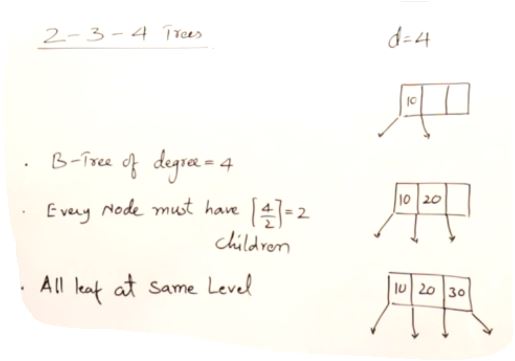 2-3-4 Trees
d=4
10
. B-Tree of degree = 4
. Every Node must have ⌈4/2⌉=2
children
10 20
. All leaf at Same Level
10 20 30